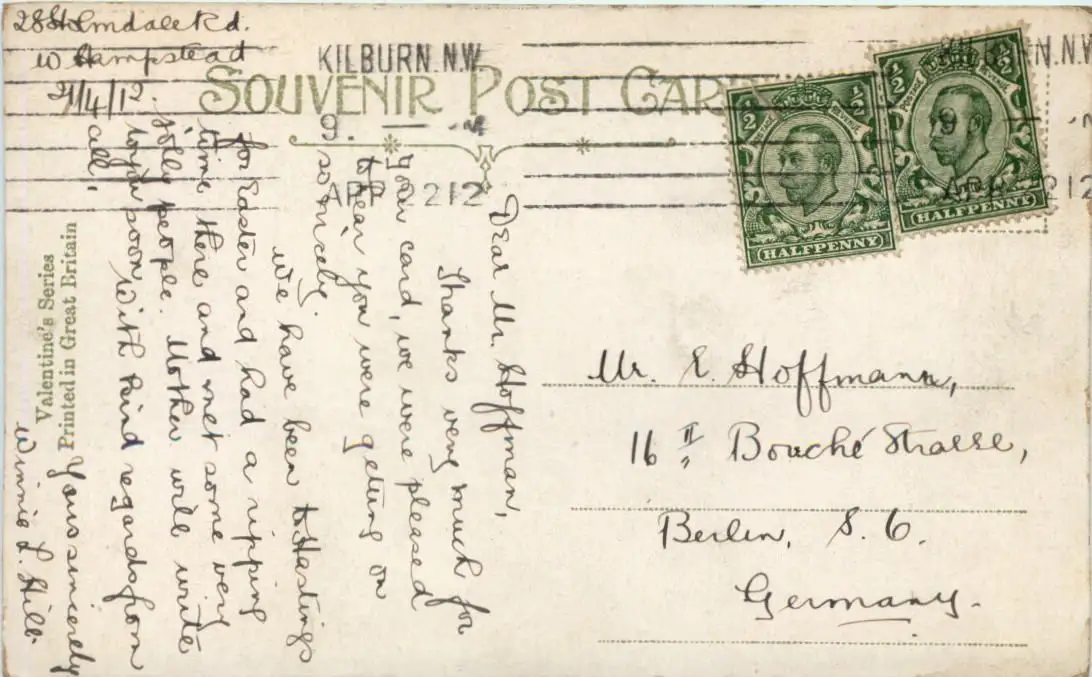 28 Holmdale Rd.
W Hampstead
21/4/12.
Dear Mr. Hoffman,
Thanks very much for
your card, we were pleased
to hear you were getting on
so nicely.
We have been to Hastings
for Easter and had a ripping
time there and met some very
jolly people. Mother will write
to you soon with kind regards from
all.
Yours sincerely
Winnie L. Hill
Valentine's Series
Printed in Great Britain
SOUVENIR POST CARD
KILBURN. N.W.
9.
APR 12
1/2 1/2
POSTAGE REVENUE
HALFPENNY
1/2 1/2
POSTAGE REVENUE
HALFPENNY
N.W
9
12
Mr. E. Hoffmann,
16 II Bouché Strasse,
Berlin, S. O.
Germany.